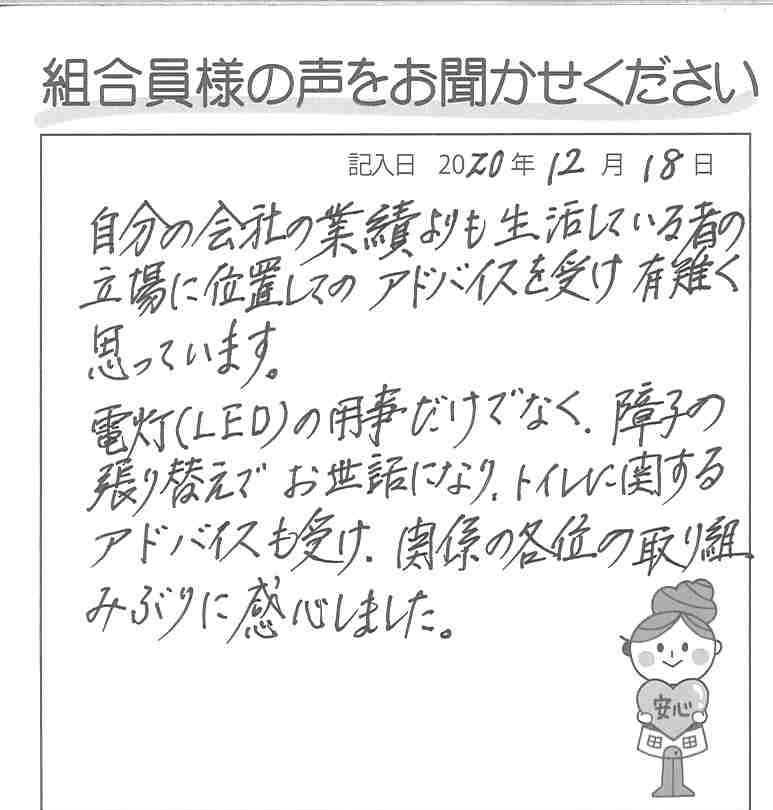 組合員様の声をお聞かせください
記入日 2020年12月18日
自分の会社の業績よりも生活している者の
立場に位置してのアドバイスを受け有難く
思っています。
電灯(LED)の用事だけでなく、障子の
張り替えでお世話になり、トイレに関する
アドバイスも受け、関係の各位の取り組
みぶりに感心しました。
安心